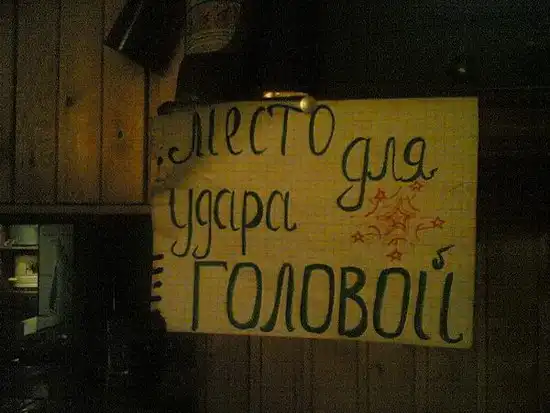 место для
удара
головой